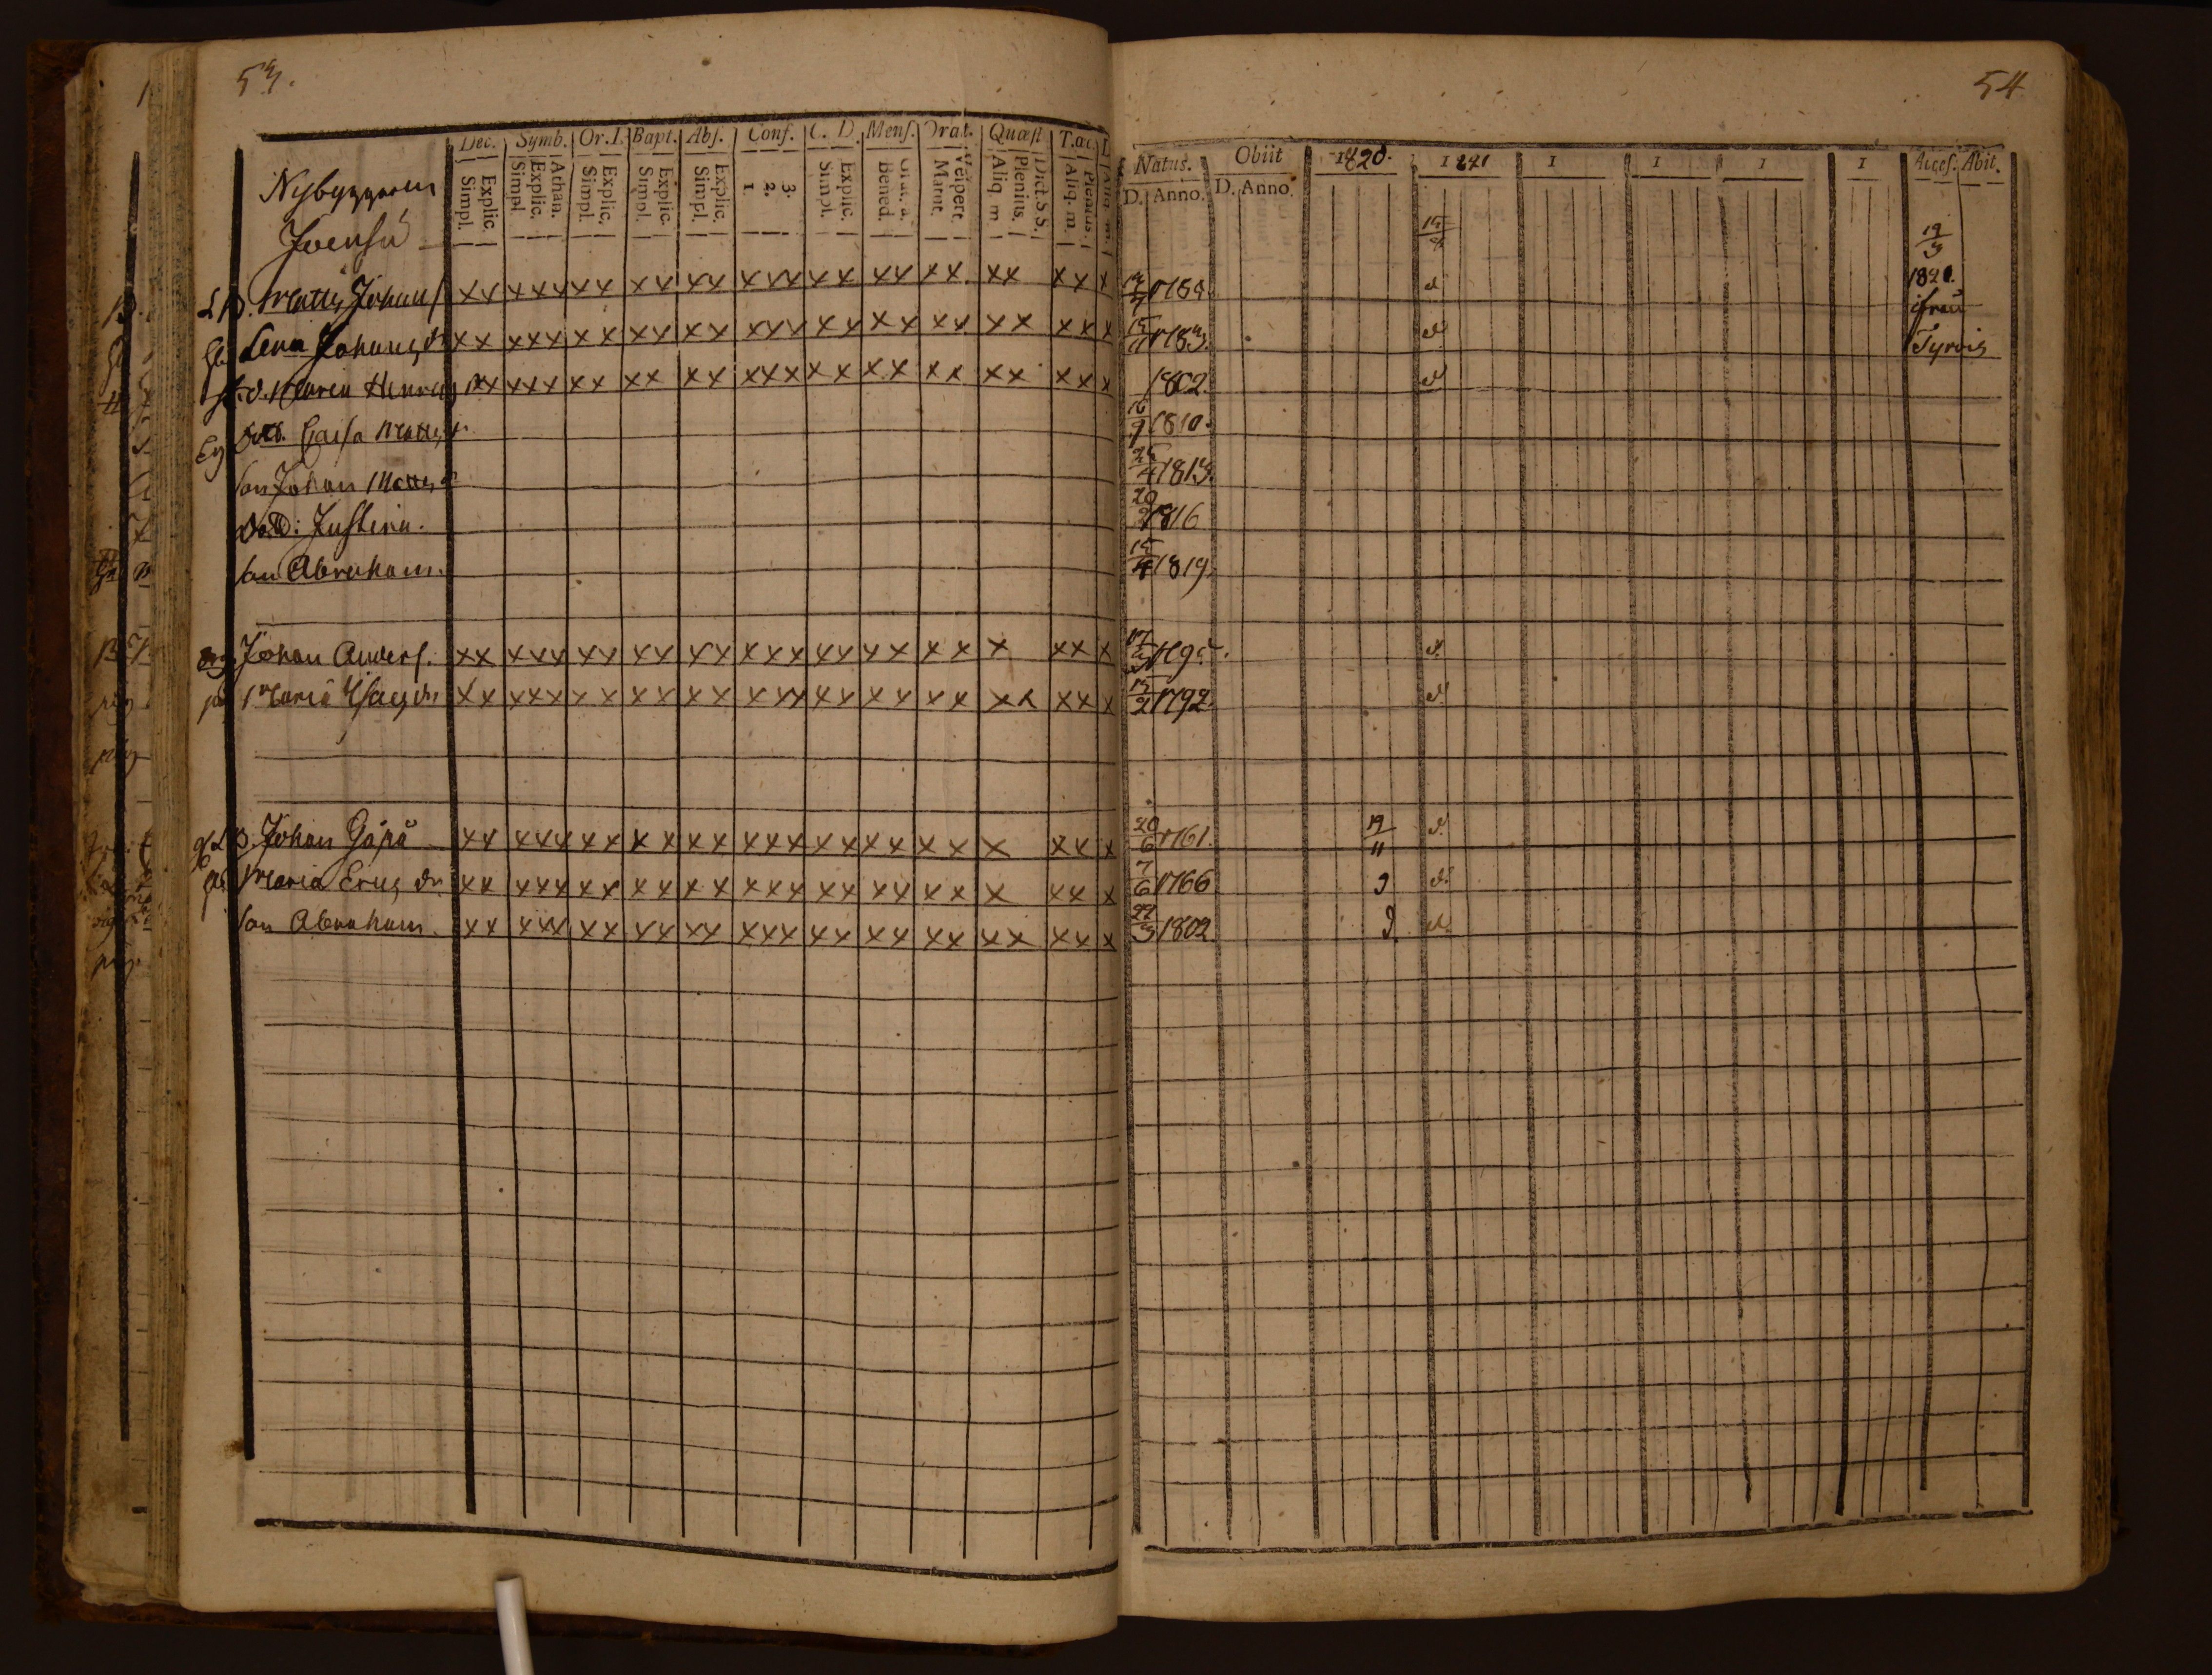 53.
Dec. Symb. Or.I. Bapt. Abs. Conf. C. D. Mens. Orat. Quæst T.æc
Explic. Simpl. Athan. Explic. Simpl. Explic. Simpl. Explic. Simpl. Explic. Simpl. 3. 2. 1. Explic. Simpl. Grat. a. Bened. Vespert. Matut. Dict.S.S. Plenius. Aliq. m. Plenius. Aliq. m.
Nybyggaren
Joensu
Matts Johans xx xxx xx xx xx xxx xx xx xx xx xx x
Lena Johans dr xx xxx xx xx xx xxx xx xx xx xx xx x
Maria Henrics xx xxx xx xx xx xxx xx xx xx xx xx x
Caisa Matts dr
Son Johan Matts
Dott: Justina.
Son Abraham.
Johan Anders. xx xxx xx xx xx xxx xx xx xx x xx x
Maria Isacs dr xx xxx xx xx xx xxx xx xx xx xx xx x
Johan Göpå xx xxx xx xx xx xxx xx xx xx x xx x
Maria Erics dr xx xxx xx xx xx xxx xx xx xx x xx x
Son Abraham. xx xxx xx xx xx xxx xx xx xx xx xx x
54
Natus. Obiit 1820. 1821 1 1 1 1 Acces. Abit.
D. Anno. D. Anno.
19/3
1820.
från
Tyrvis
1802.
16/9 1810.
25/4 1813.
1816
15/4 1819.
15/2 1792.
20/6 1761. 19/11
7/6 1766
22/3 1802.